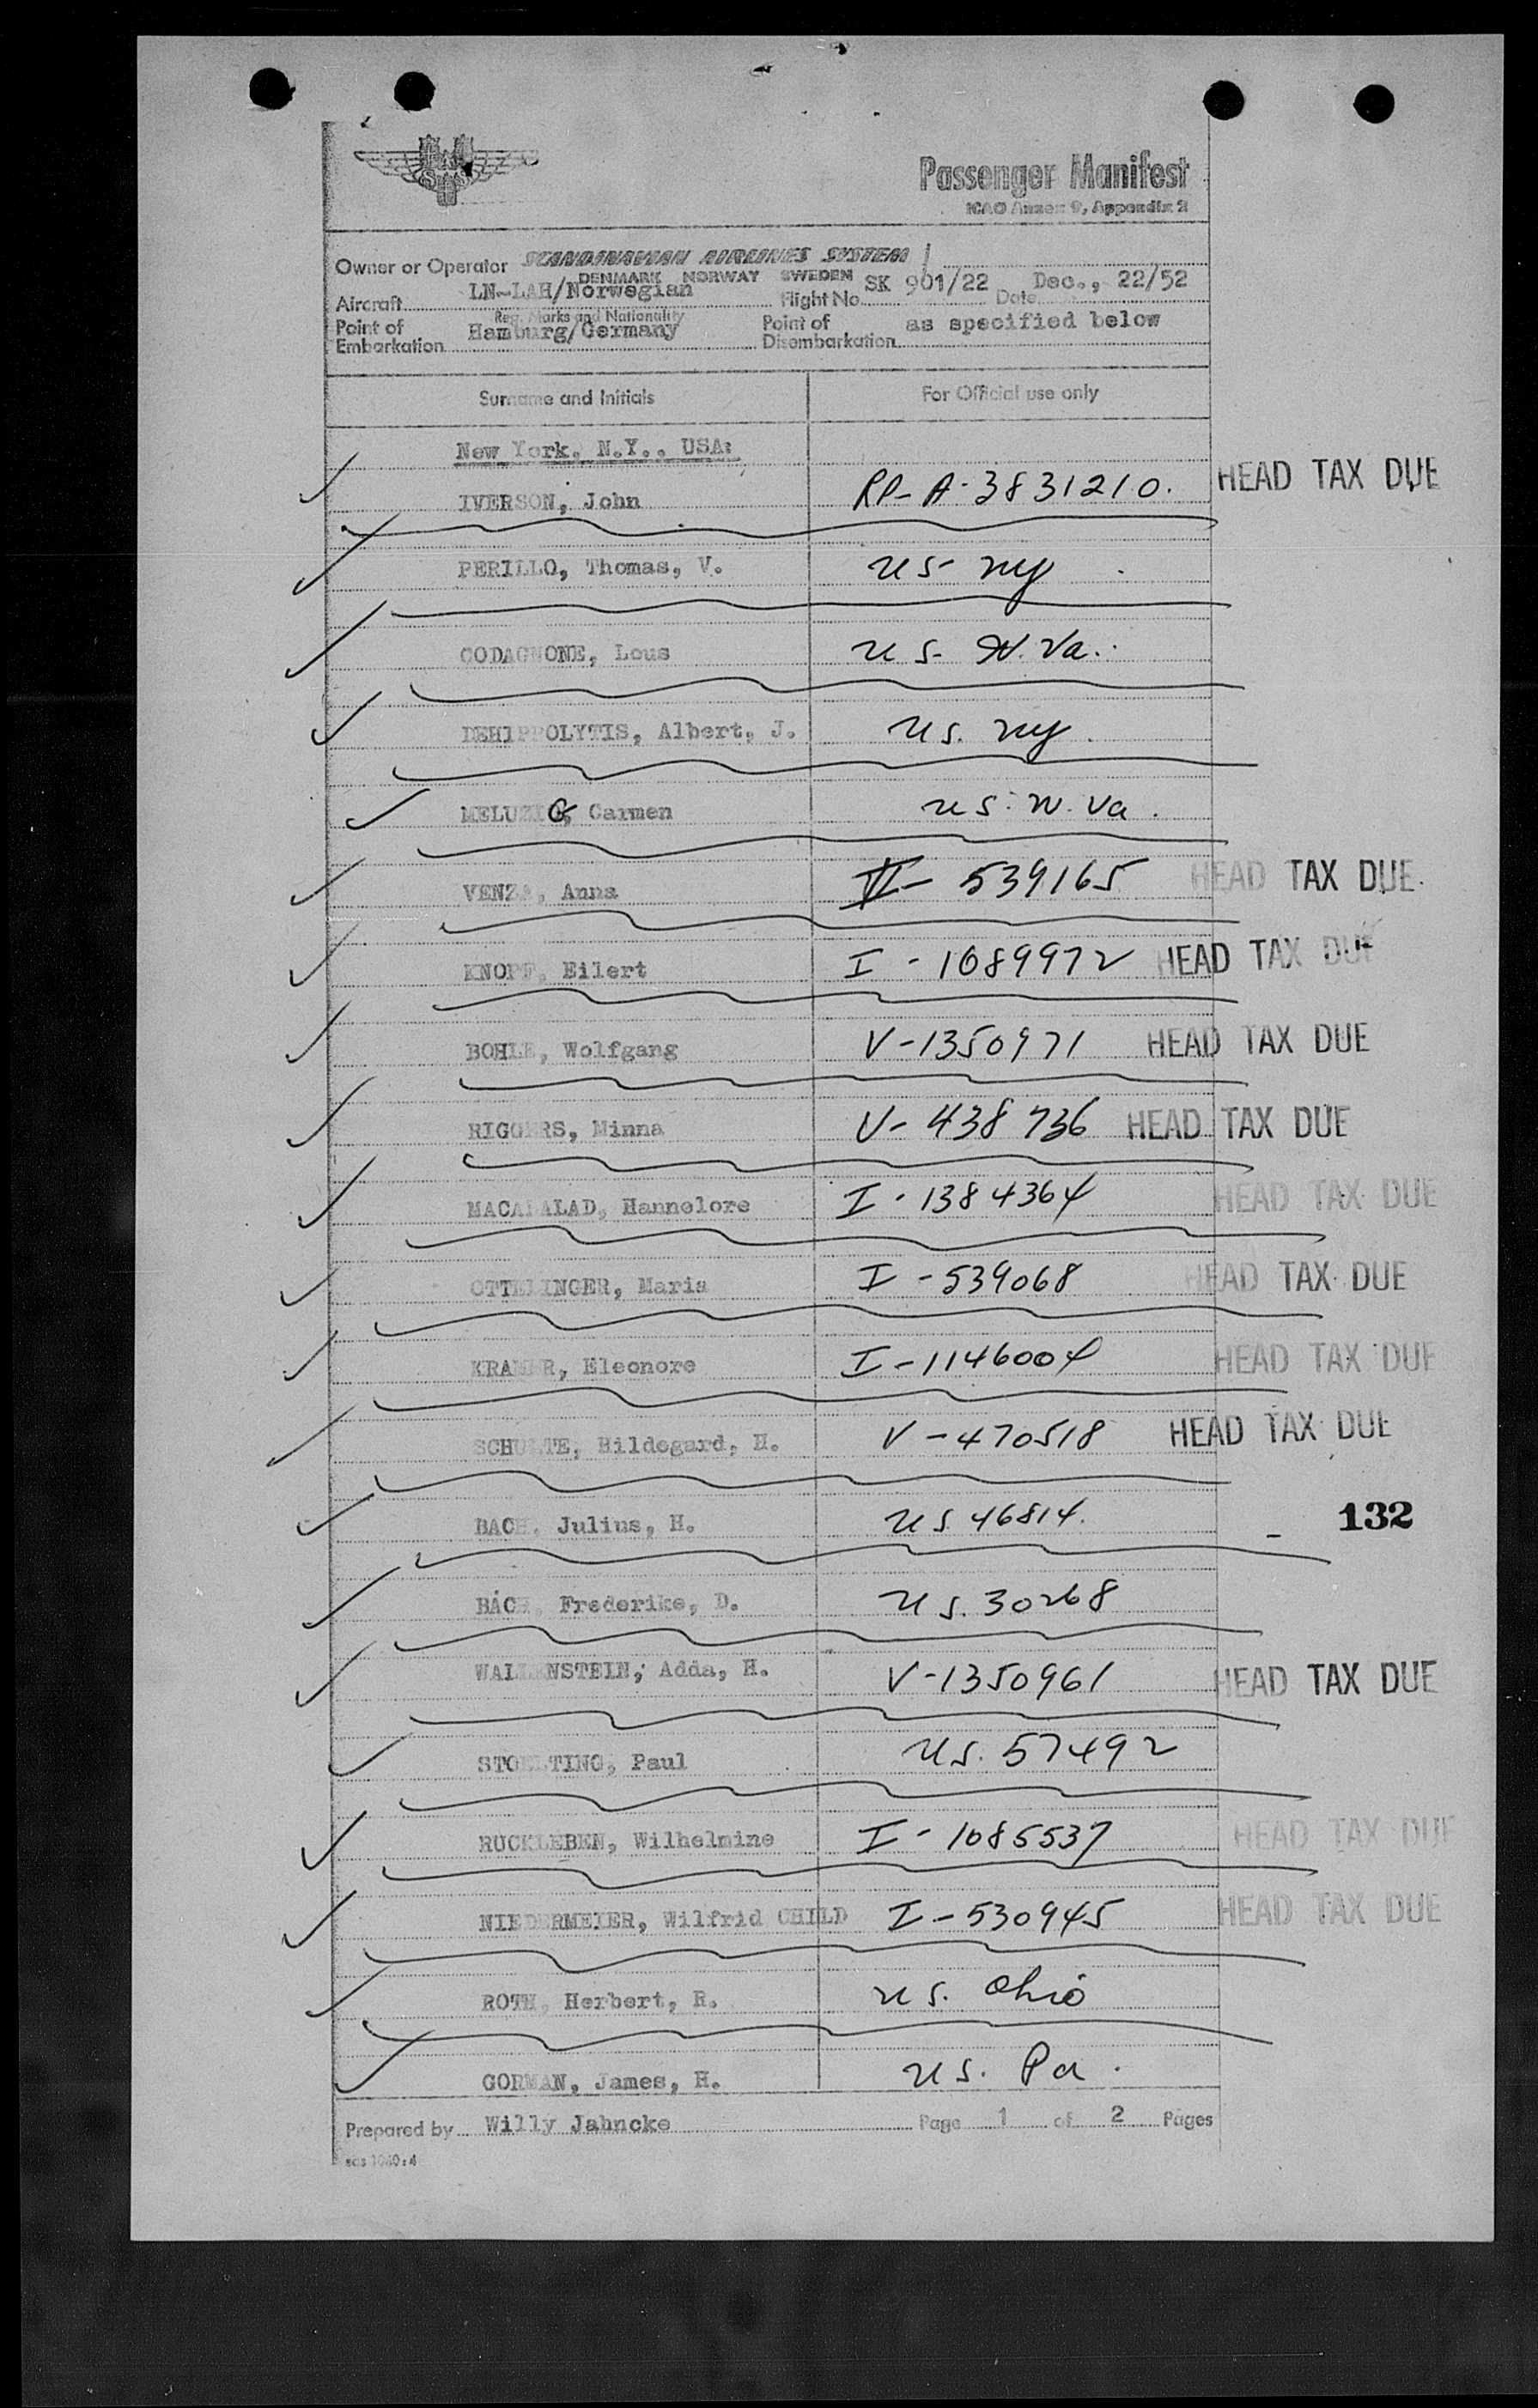 SAS
Passenger Manifest
ICAO Annex 9, Appendix 2
Owner or Operator SCANDINAVIAN AIRLINES SYSTEM
DENMARK NORWAY SWEDEN
Aircraft LN-LAH/Norwegian Flight No. SK 901/22 Date Dec., 22/52
Reg. Marks and Nationality
Point of Embarkation Hamburg/Germany Point of Disembarkation as specified below
Surname and Initials For Official use only
New York, N.Y., USA:
IVERSON, John RP-A-3831210. HEAD TAX DUE
PERILLO, Thomas, V. US- NY
CODAGNONE, Lous US- W. Va.
DEHIPPOLYTIS, Albert, J. US. NY.
MELUZIO, Carmen US. W. Va.
VENZA, Anna VI- 539165 HEAD TAX DUE
KNOPF, Eilert I - 1089972 HEAD TAX DUE
BOHLE, Wolfgang V-1350971 HEAD TAX DUE
RIGGERS, Minna V- 438736 HEAD TAX DUE
MACALALAD, Hannelore I - 1384364 HEAD TAX DUE
OTTELINGER, Maria I - 539068 HEAD TAX DUE
KRAMER, Eleonore I - 1146004 HEAD TAX DUE
SCHULTE, Hildegard, H. V - 470518 HEAD TAX DUE
BACH, Julius, H. US 46814.
132
BACH, Frederike, D. US. 30268
WALLENSTEIN, Adda, H. V-1350961 HEAD TAX DUE
STOELTING, Paul US. 57492
RUCKLEBEN, Wilhelmine I - 1085537 HEAD TAX DUE
NIEDERMEIER, Wilfrid CHILD I - 530945 HEAD TAX DUE
ROTH, Herbert, R. US. Ohio
GORMAN, James, H. US. Pa.
Prepared by Willy Jahncke Page 1 of 2 Pages